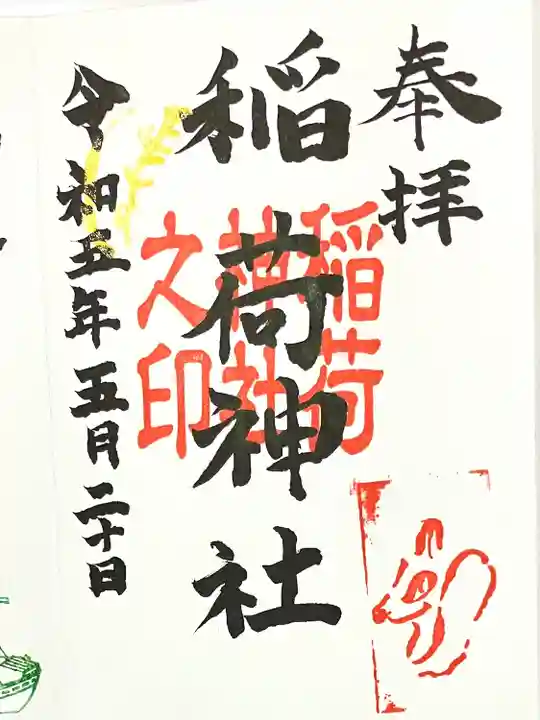 奉拝
稲荷神社
稲荷
神社
之印
令和五年五月二十日